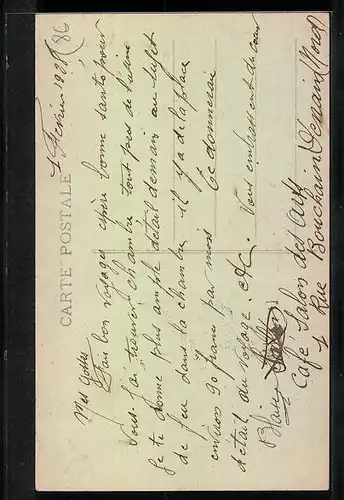 CARTE POSTALE
4 Février 1928
Mes Gosses
Fait bon voyage espère bonne santé pour
vous. J'ai trouver chambre tout près de l'usine
Je te donne plus ample détail demain au sujet
de feu dans la chambre il y a de la place
environ 90 francs par mois Je donnerai
détail du voyage. etc. Vous embrasse du cœur
Blaise
Café Salon des Arts
4 Rue Bouchain Denain (Nord)